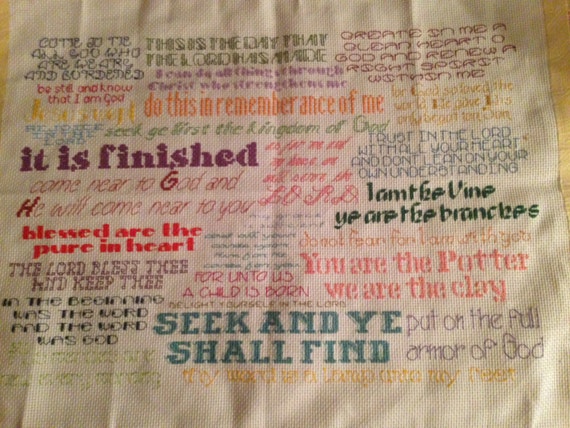 COME TO ME
ALL YOU WHO
ARE WEARY
AND BURDENED
THIS IS THE DAY THAT
THE LORD HAS MADE
CREATE IN ME A
CLEAN HEART O
GOD AND RENEW A
RIGHT SPIRIT
WITHIN ME
be still and know
that I am God
I can do all things through
Christ who strengthens me
Jesus wept
do this in remembrance of me
for God so loved the
world He gave His
only begotten Son
seek ye first the kingdom of God
TRUST IN THE LORD
WITH ALL YOUR HEART
AND DONT LEAN ON YOUR
OWN UNDERSTANDING
it is finished
as for me and
my house we
will serve the
LORD
come near to God and
He will come near to you
I am the Vine
ye are the branches
blessed are the
pure in heart
do not fear for I am with you
You are the Potter
we are the clay
THE LORD BLESS THEE
AND KEEP THEE
FOR UNTO US
A CHILD IS BORN
DELIGHT YOURSELF IN THE LORD
IN THE BEGINNING
WAS THE WORD
AND THE WORD
WAS GOD
SEEK AND YE
SHALL FIND
put on the full
armor of God
thy word is a lamp unto my feet